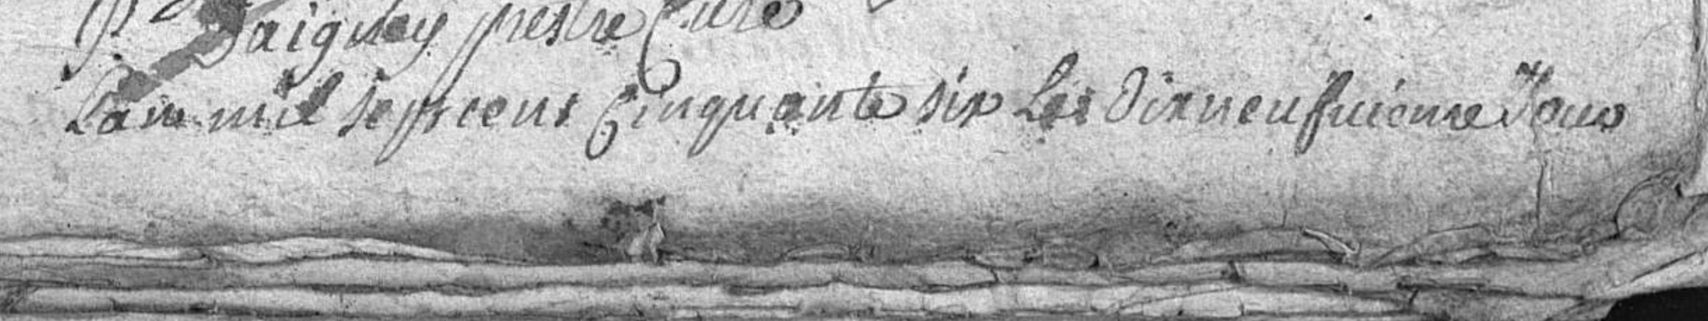 prestre Curé
Lan mil sept cent Cinquante six Le Dixneufvieme Jour